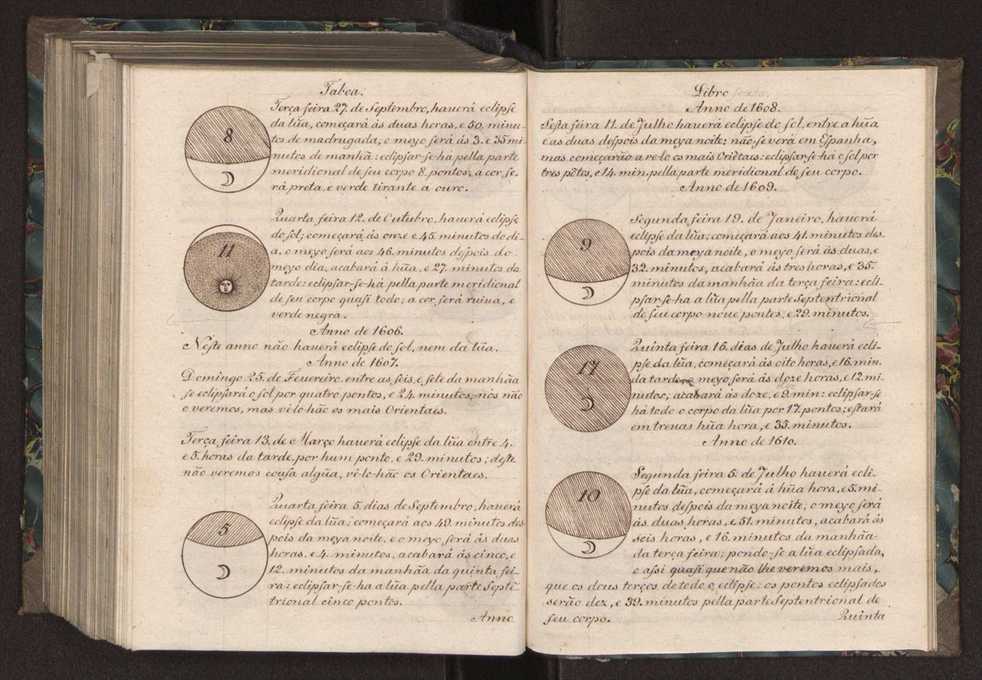 Taboa.
8
Terça feira 27. de Septembro, hauerá eclipse
da lũa, começará ás duas horas, e 50. minu-
tos de madrugada; o meyo será ás 3. e 35 mi-
nutos de manhã: eclipsar-se-há pella parte
meridional de seu corpo 8. pontos; a cor, se-
rá preta, e verde tirante a ouro.
11
Quarta feira 12. de Outubro, hauerá eclipse
do sol; começará ás onze e 45. minutos do di-
a. o meyo será aos 46. minutos despois do
meyo dia, acabará á hũa, e 27. minutos da
tarde: eclipsar-se-há pella parte meridional
de seu corpo quasi todo; a cor será ruiua, e
verde negra.
Anno de 1606.
Neste anno não hauerá eclipse do sol, nem da lũa.
Anno de 1607.
Domingo 25. de Feuereiro, entre as seis, e sete da manhãa
se eclipsará o sol por quatro pontos, e 24. minutos, nós não
o veremos, mas vê-lo-hão os mais Orientaes.
Terça feira 13. de Março hauerá eclipse da lũa entre 4.
e 5. horas da tarde, por hum ponto, e 29. minutos; deste
não veremos cousa algũa, vê-lo-hão os Orientaes.
5
Quarta feira 5. dias de Septembro, hauerá
eclipse da lũa; começará aos 49. minutos des
pois da meya noite, e o meyo, será ás duas
horas, e 4. minutos, acabará ás cinco, e
12. minutos da manhãa da quinta fei-
ra: eclipsar-se-ha a lũa pella parte Septẽ
trional cinco pontos.
Anno
Libro
Anno de 1608.
Sesta feira 11. de Julho hauerá eclipse do sol, entre a hũa
e as duas despois da meya noite: não se verá em Espanha,
mas começarão a ve-lo os mais Oriẽtaes: eclipsar-se-há o sol por
tres põtos, e 14. min. pella parte meridional de seu corpo.
Anno de 1609.
9
Segunda feira 19. de Janeiro, hauerá
eclipse da lũa; começará aos 41. minutos des-
pois da meya noite, o meyo será ás duas, e
32. minutos, acabará ás tres horas, e 35.
minutos da manhãa da terça feira: ecli-
psar-se-ha a lũa pella parte Septentrional
de seu corpo noue pontos, e 29. minutos.
17
Quinta feira 16. dias de Julho hauerá ecli-
pse da lũa, começará ás oito horas, e 16. min.
da tarde, o meyo será ás doze horas, e 12. mi-
nutos; acabará ás doze, e 9. min: eclipsar-se
há todo o corpo da lũa por 17. pontos; estará
em treuas hũa hora, e 33. minutos.
Anno de 1610.
10
Segunda feira 5. de Julho hauerá ecli-
pse da lũa, começará á hũa hora, e 5. mi-
nutos despois da meya noite; o meyo será
ás duas horas, e 51. minutos, acabará ás
seis horas, e 16. minutos da manhãa
da terça feira; pondo-se a lũa eclipsada,
e assi quasi que não lhe veremos mais,
que os dous terços de todo o eclipse: os pontos eclipsados
serão dez, e 39. minutos pella parte Septentrional de
seu corpo.
Quinta